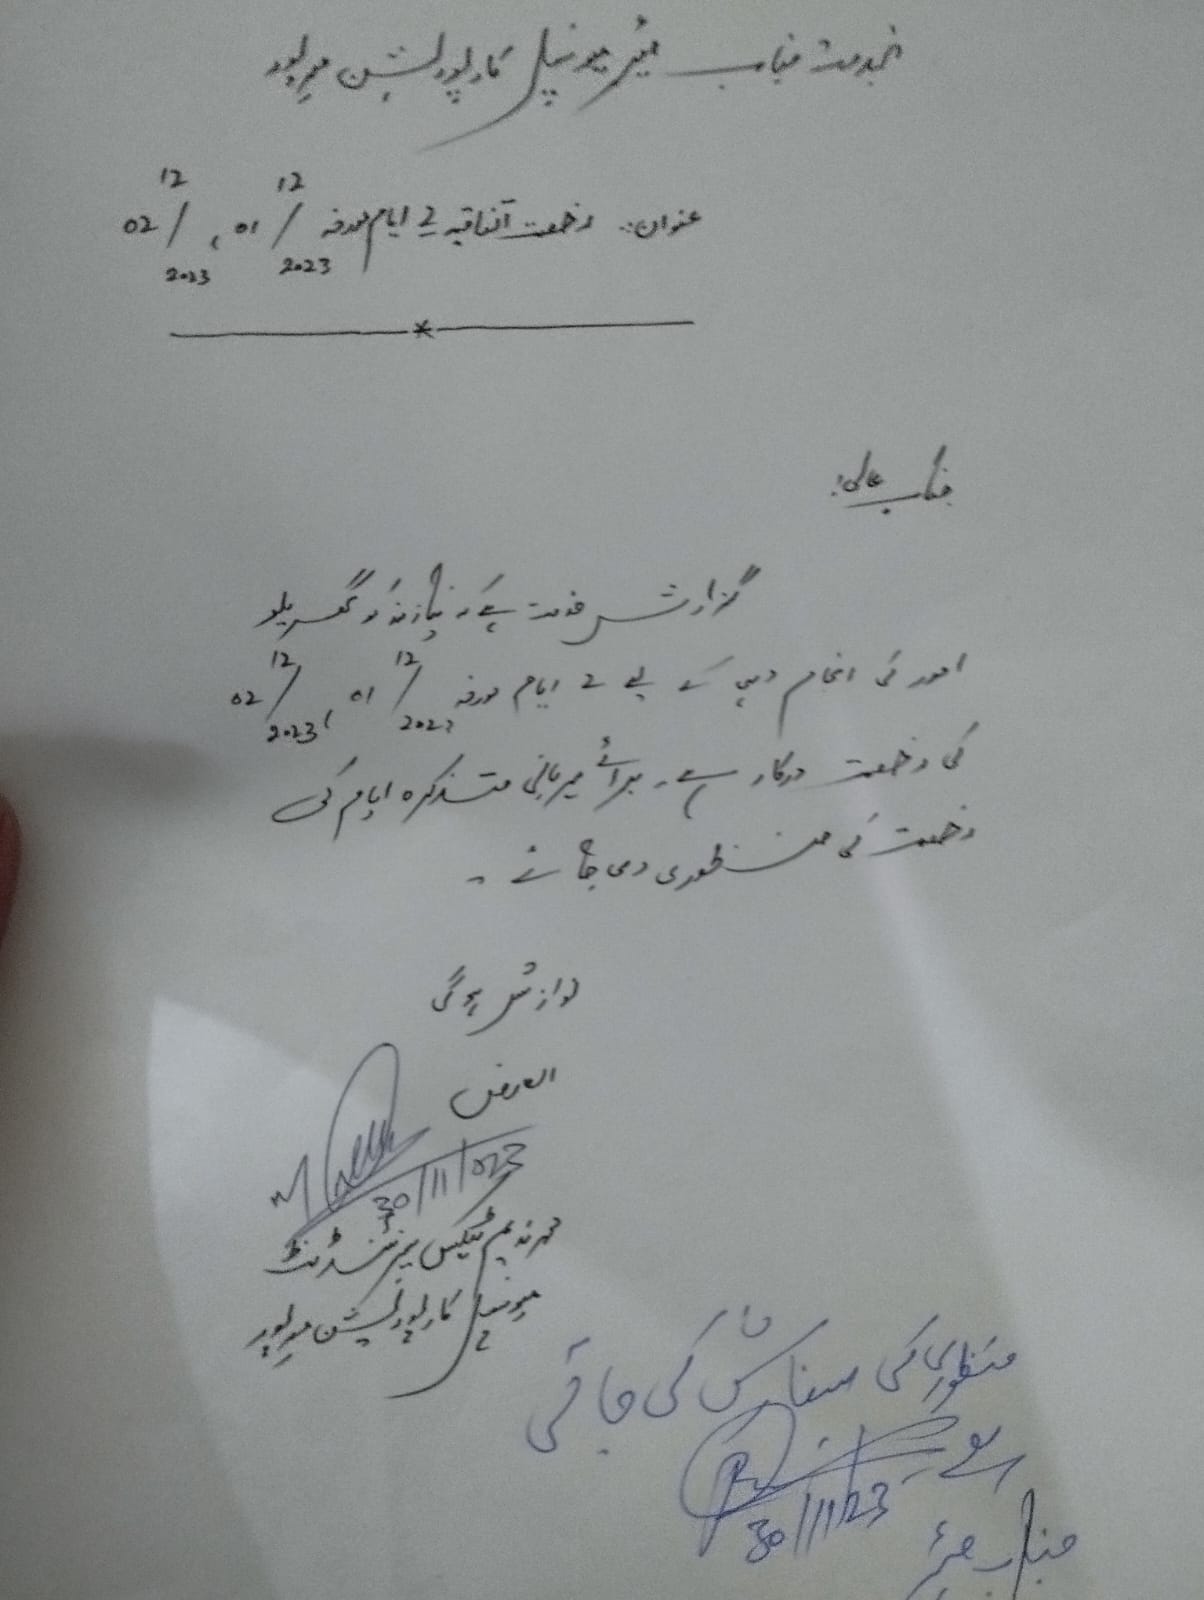 بخدمت جناب میئر میونسپل کارپوریشن میرپور
عنوان:۔ رخصت اتفاقیہ 2 ایام مورخہ 01/12/2023، 02/12/2023
جناب عالی!
گزارش خدمت ہے کہ نیازمند کو گھریلو
امور کی انجام دہی کے لیے 2 ایام مورخہ 01/12/2023، 02/12/2023
کی رخصت درکار ہے۔ برائے مہربانی متذکرہ ایام کی
رخصت کی منظوری دی جائے۔
نوازش ہوگی
العارض
30/11/023
محمد ندیم ٹیکس سپرنٹنڈنٹ
میونسپل کارپوریشن میرپور
منظوری کی سفارش کی جاتی
ہے
30/11/23
جناب میئر